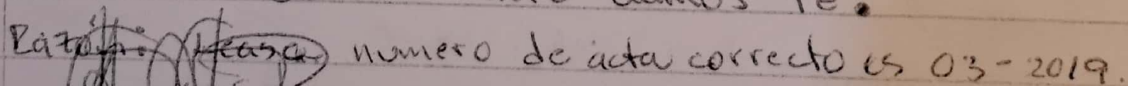 damos fe.
numero de acta correcto es 03-2019.